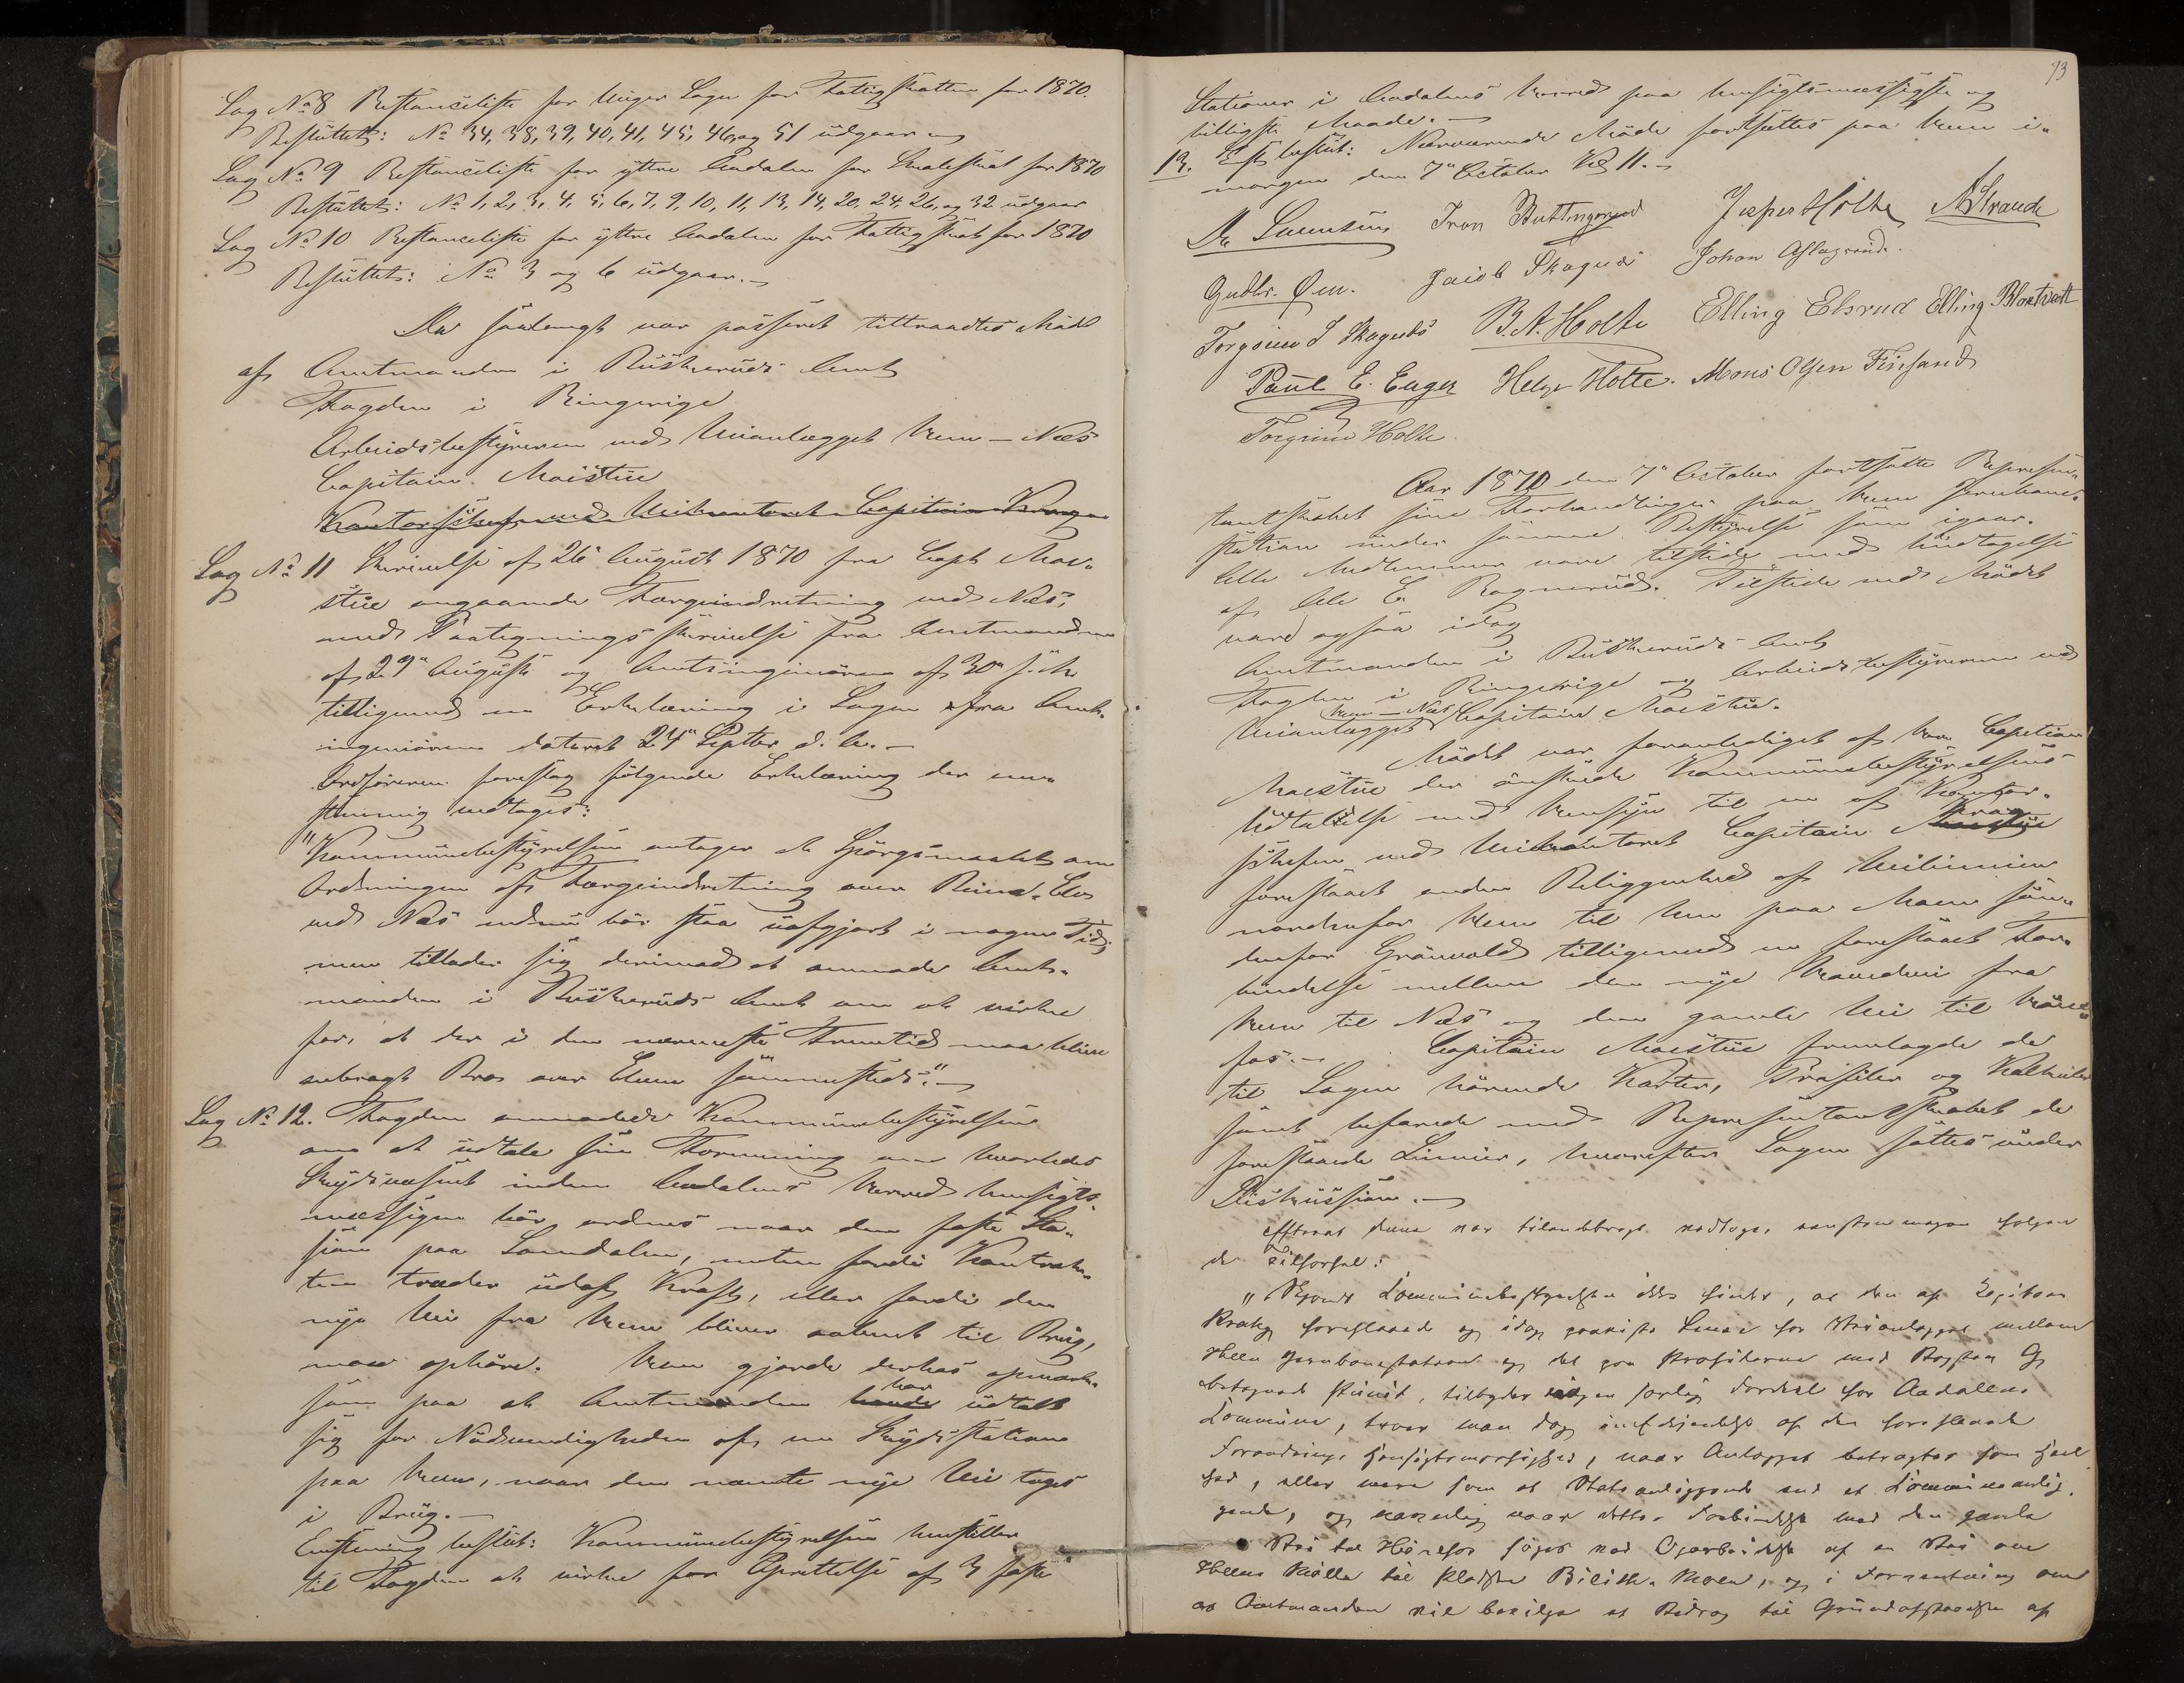 Sag No 8 Restanceliste for Unger Sogn for Fattigskatten for 1870.
Besluttet: No 34, 38, 39, 40, 41, 45, 46, og 51 udgaar
Sag No 9 Restanceliste for yttre Aadalen for Skoleskat for 1870
Besluttet: No 1, 2, 3, 4, 5, 6, 7, 9, 10, 11, 13, 14, 20, 24, 26, og 32 udgaar
Sag No 10 Restanceliste for yttre Aadalen for Fattigskat for 1870
Besluttet: No 3 og 6 udgaar.
Da saalangt var passeret tiltraadtes Mödet
af Amtmanden i Buskeruds Amt
Fogden i Ringerige
Arbeidsbestyreren ved Veianlægget Heen – Næs
Capitain Moestüe
Kontorschef ved Veikontoret Capitain Krag
Sag No 11 Skrivelse af 26 August 1870 fra Capt Moe-
stüe angaaende Færgeindretning ved Næs,
med Paategningsskrivelse fra Amtmanden
af 29" August og Amtsingeniøren af 30" s. M.
tilligemed en Erklæring i Sagen fra Amts-
ingeniøren dateret 24" Septbr d. A. –
Ordføreren foreslog følgende Erklæring der een-
stemmig vedtoges:
"Kommunebestyrelsen antager at Spørgsmaalet om
Ordningen af Færgeindretning over Beina-Elv
ved Næs endnu bør staa uafgjort i nogen Tid;
men tillader sig derimod at anmode Amt-
manden i Buskeruds Amt om at virke
for, at der i den nærmeste Fremtid maa blive
anbragt Bro over Elven sammesteds." –
Sag No 12. Fogden anmodede Kommunebestyrelsen
om at udtale sin Formening om hvorledes
Skydsvæsnet inden Aadalens Herred hensigts-
mæssigen bør ordnes naar den faste Sta-
sjon paa Somdalen, enten fordi Kontrak-
ten træder udaf Kraft, eller fordi den
nye Vei fra Heen bliver aabnet til Brug,
maa ophøre. Han gjorde derhos opmærk-
som paa at Amtmanden havde har udtalt
sig for Nødvendigheden af en Skydsstation
paa Heen, naar den nævnte nye Vei tages
i Brug. –
Eenstemmig beslut: Kommunebestyrelsen henstiller
til Fogden at virke for Oprettelse af 3 faste
93
Stationer i Aadalens Herred paa hensigtsmæssigste og
billigste Maade. –
13. Besluttet: Nærværende Møde fortsættes paa Heen i-
morgen den 7" October Kl 11. –
Jesper Holte AStrande
Gudbr. Øen. Jacob Skagnæs Johan Aslagsrud.
Torgrim J Skagnæs B. A. Holte Elling Elsrud Elling Blaktvedt
Paul E. Enger Helge Holte. Mons Olsen Finsand
Torgrim Holte
Aar 1870 den 7" October fortsatte Represen-
tantskabet sine Forhandlinger paa Heen Jernbane-
station under samme Bestyrelse som igaar.
Alle Medlemmer vare tilstede med Undtagelse
af Ole E. Ragnerud. Tilstede ved Mødet
vare ogsaa idag
Amtmanden i Buskeruds Amt
Fogden i Ringerige og Arbeidsbestyreren ved
Veianlægget Heen – Næs Capitain Moestüe.
Mødet var foranlediget af Hrr. Capitain
Moestüe der ønskede Kommunebestyrelsens
Udtalelse med Hensyn til en af Kontor-
schefen ved Veikontoret Capitain Krag
foreslaaet anden Beliggenhed af Veilinien
nordenfor Heen til hen paa Moen søn-
denfor Grönvold tilligemed en foreslaaet For-
bindelse mellem den nye Hovedvei fra
Heen til Næs og den gamle Vei til Høne-
fos. – Capitain Moestüe fremlagde de
til Sagen hørende Karter, Profiler og Kalkuler
samt befarede med Representantskabet de
foreslaaede Linnier, hvorefter Sagen sattes under
Diskussion. –
efterat denne var tilendebragt vedtoges eenstemmigen følgen-
de Tilførsel:
"Skjøndt Kommunebestyrelsen ikke finder, at den af Capitain
Krag foreslaaede og idag paaviste Linie for Veianlægget mellem
Heen Jernbanestation og det paa Profilerne med Bogstav G
betegnede Punct, tilbyder nogen særlig Fordeel for Aadalens
Kommune, tror man dog af den foreslaaede
Forandrings Hensigtsmæssighed, naar Anlægget betragtes som Heel-
hed, eller mere som et Statsanliggende end et Kommuneanlig-
gende, og navnlig naar dette i Forbindelse med den gamle
Vei til Hønefos søges ved Oparbeidelse af en Vei over
Heens Mølle til Pladsen Moen, og i Forventning om
at Amtmanden vil bevilge et Bidrag til Grundafstaaelse af